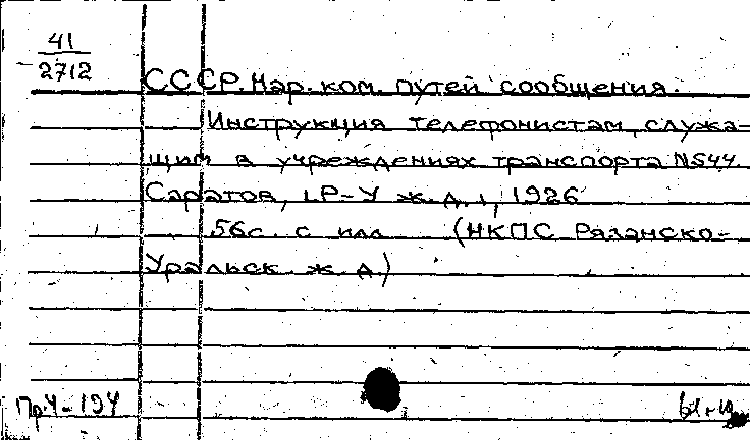 41
2712
СССР. Нар. ком. путей сообщения.
Инструкция телефонистам, служа-
щим в учреждениях транспорта N544.
Саратов, [Р-У ж.д.], 1926
56с. с илл (НКПС Рязанско-
Уральск. ж. д.)
Пр4-194